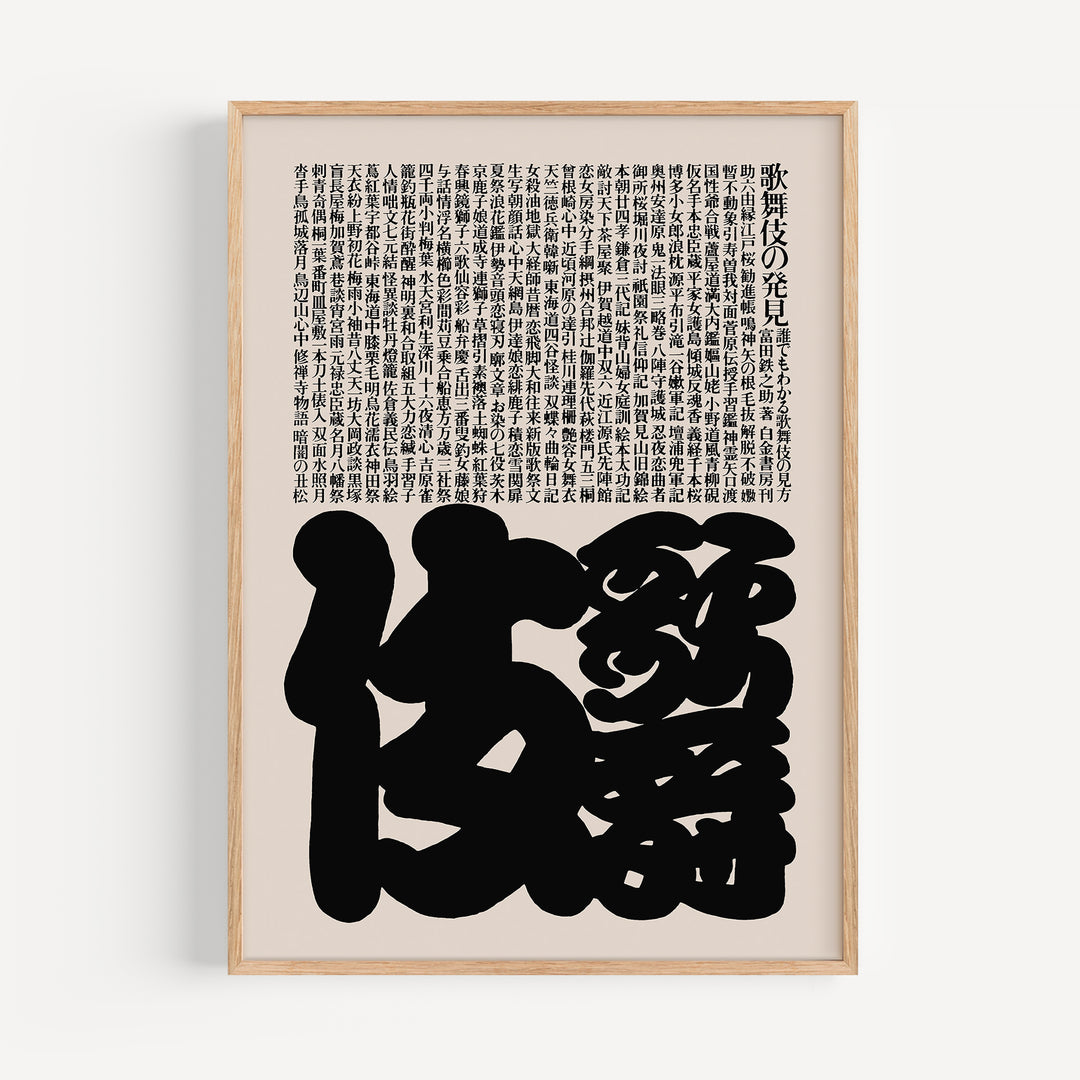 歌舞伎の発見
誰でもわかる歌舞伎の見方
富田鉄之助 著 白金書房刊
助六由縁江戸桜 勧進帳 鳴神 矢の根 毛抜 解脱 不破 嫐
暫 不動 象引 寿曽我対面 菅原伝授手習鑑 神霊矢口渡
国性爺合戦 蘆屋道満大内鑑 嫗山姥 小野道風青柳硯
仮名手本忠臣蔵 平家女護島 傾城反魂香 義経千本桜
博多小女郎浪枕 源平布引滝 一谷嫩軍記 壇浦兜軍記
奥州安達原 鬼一法眼三略巻 八陣守護城 忍夜恋曲者
御所桜堀川夜討 祇園祭礼信仰記 加賀見山旧錦絵
本朝廿四孝 鎌倉三代記 妹背山婦女庭訓 絵本太功記
敵討天下茶屋聚 伊賀越道中双六 近江源氏先陣館
恋女房染分手綱 摂州合邦辻 伽羅先代萩 楼門五三桐
曽根崎心中 近頃河原の達引 桂川連理柵 艶容女舞衣
天竺徳兵衛韓噺 東海道四谷怪談 双蝶々曲輪日記
女殺油地獄 大経師昔暦 恋飛脚大和往来 新版歌祭文
生写朝顔話 心中天網島 伊達娘恋緋鹿子 積恋雪関扉
夏祭浪花鑑 伊勢音頭恋寝刃 廓文章 お染の七役 茨木
京鹿子娘道成寺 連獅子 草摺引 素襖落 土蜘 紅葉狩
春興鏡獅子 六歌仙容彩 船弁慶 舌出三番叟 釣女 藤娘
与話情浮名横櫛 色彩間苅豆 乗合船恵方万歳 三社祭
四千両小判梅葉 水天宮利生深川 十六夜清心 吉原雀
籠釣瓶花街酔醒 神明裏和合取組 五大力恋緘 手習子
人情咄文七元結 怪異談牡丹燈籠 佐倉義民伝 鳥羽絵
蔦紅葉宇都谷峠 東海道中膝栗毛 明烏花濡衣 神田祭
天衣紛上野初花 梅雨小袖昔八丈 天一坊大岡政談 黒塚
盲長屋梅加賀鳶 巷談宵宮雨 元禄忠臣蔵 名月八幡祭
刺青奇偶 桐一葉 番町皿屋敷 一本刀土俵入 双面水照月
沓手鳥孤城落月 鳥辺山心中 修禅寺物語 暗闇の丑松
歌舞伎